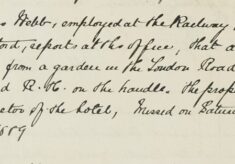 s Webb, employed at the Railway
ford, reports at the office, that a
from a garden in the London Road
d R. H. on the handle. The prop
etor of the hotel, Missed on Satur
1889